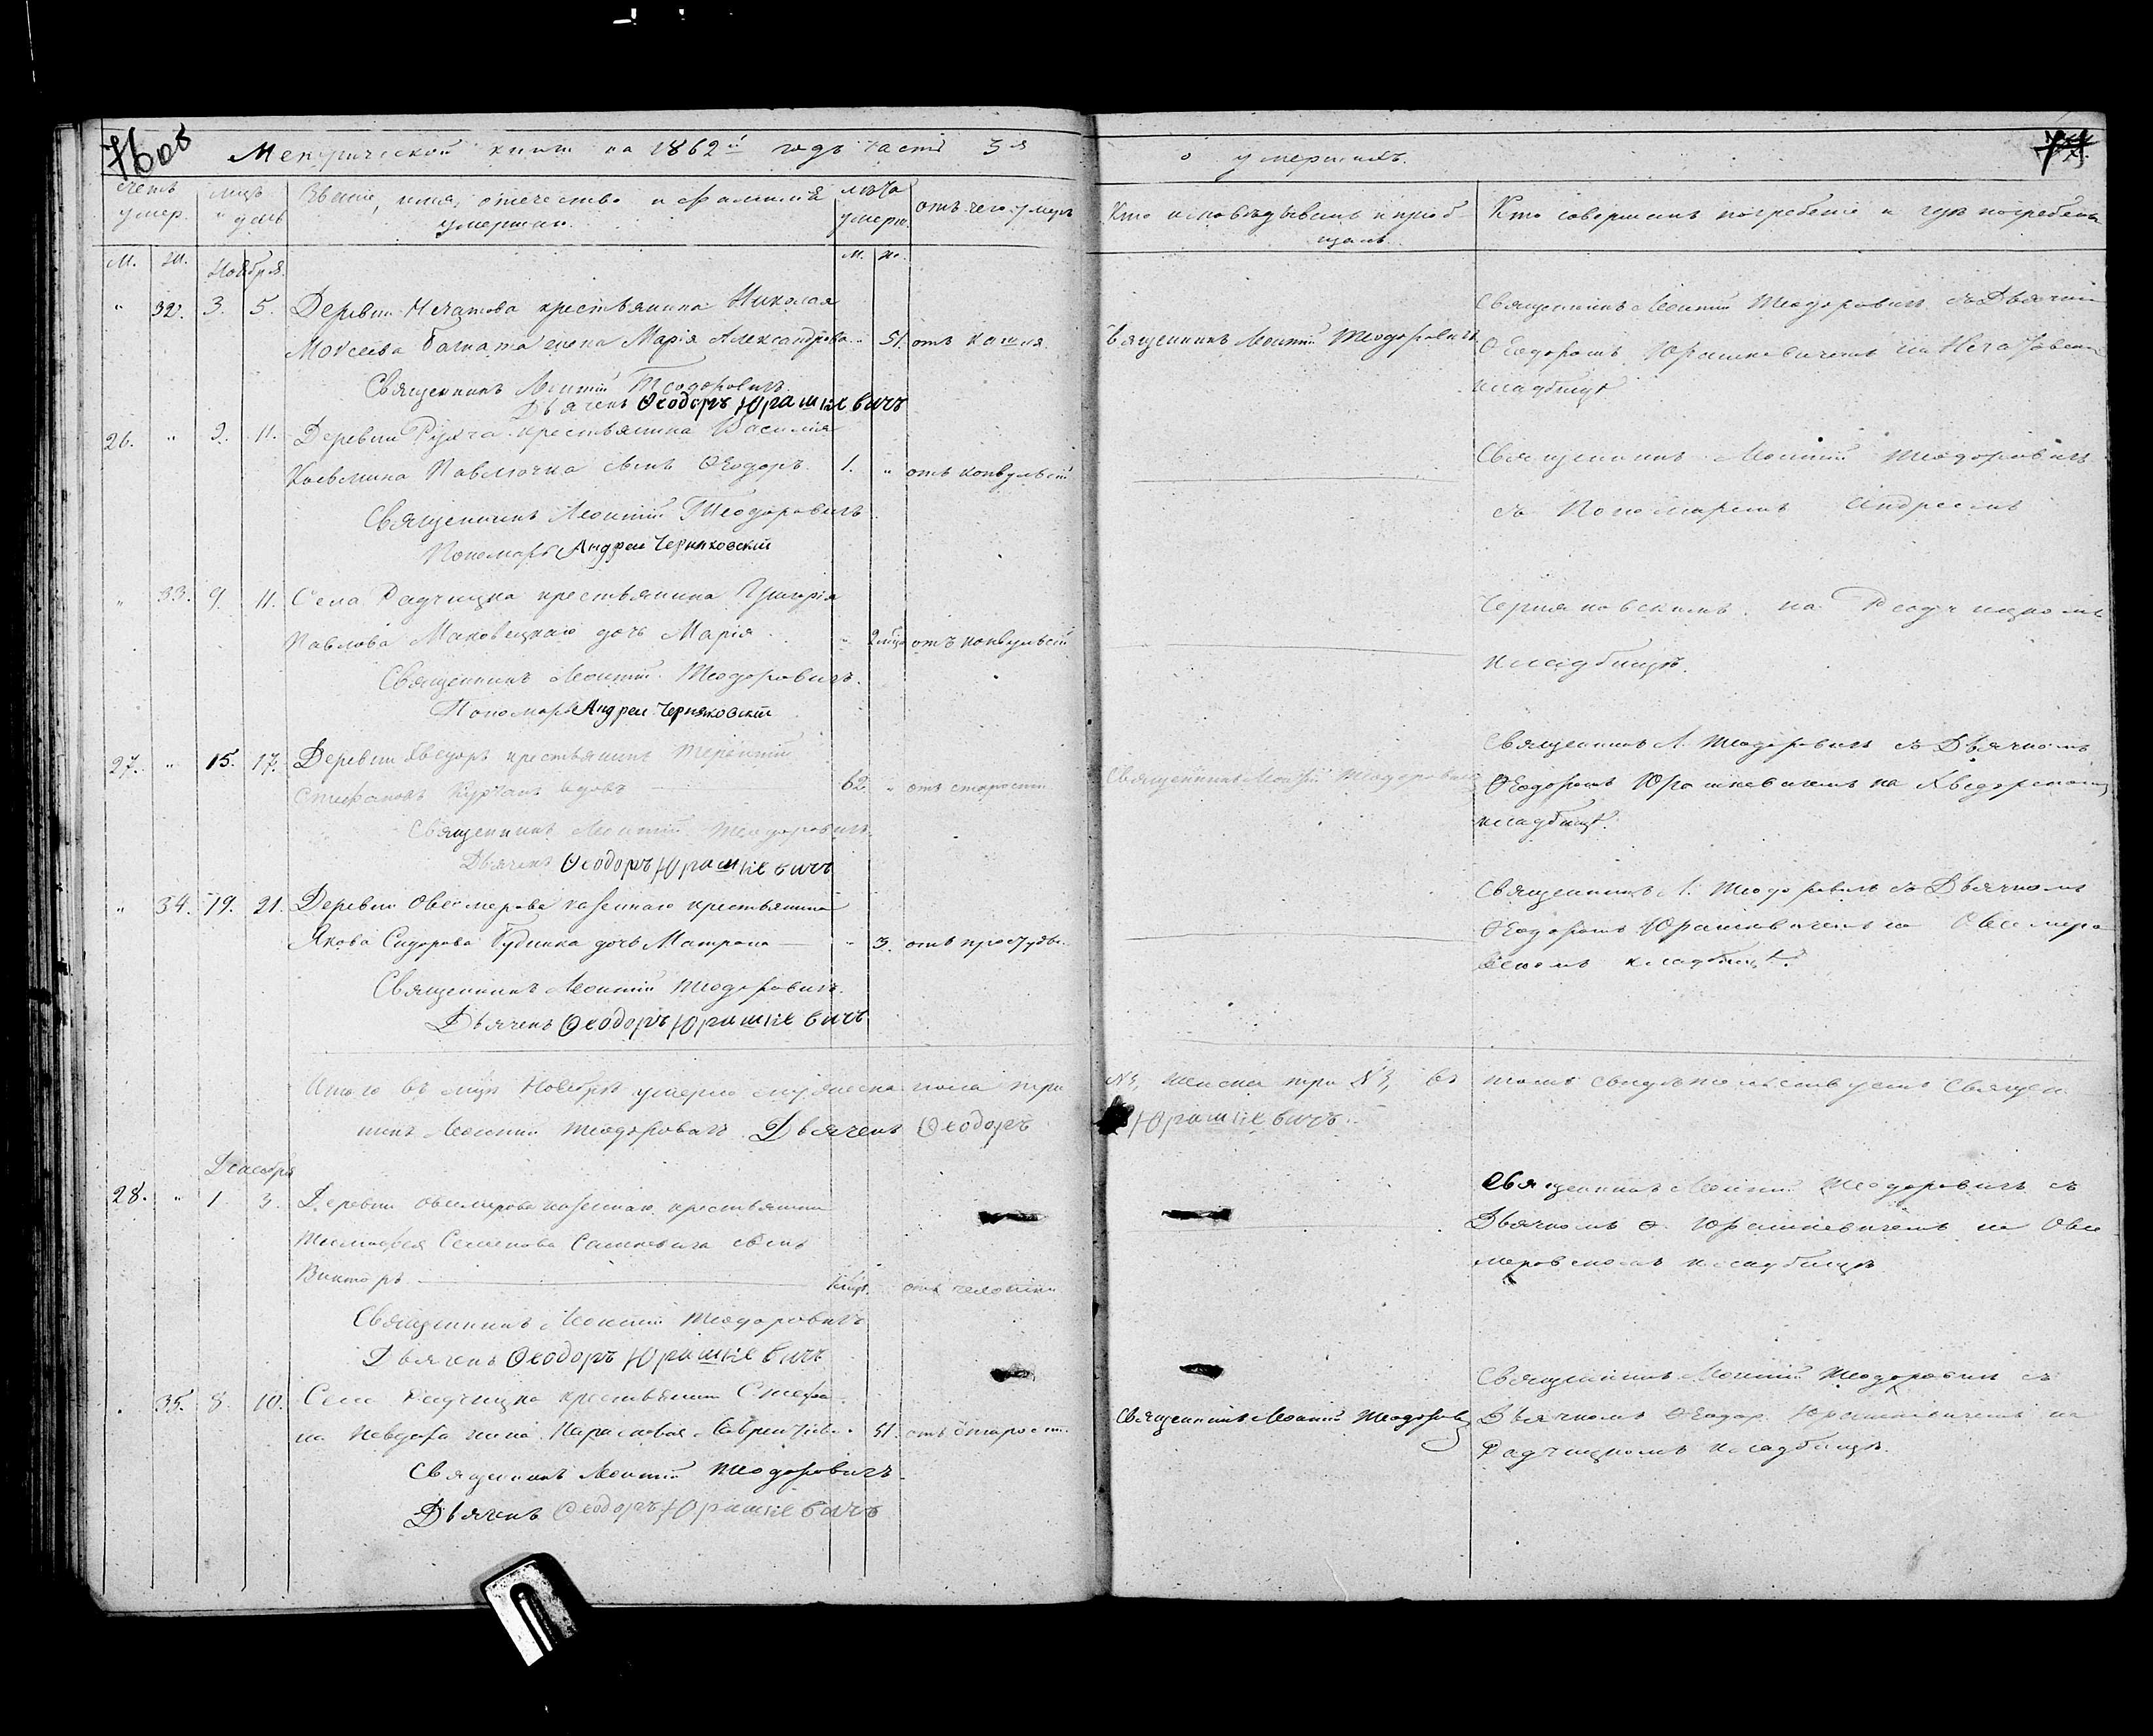 76 об
Метрической книги на 1862й годъ часть 3я
о умершихъ.
Счетъ умер.
Званіе, имя, отечество и фамилія умершаго.
Лѣта умерш.
отъ чего умеръ
Кто исповѣдывалъ и пріобщалъ.
Кто совершилъ погребеніе и гдѣ погребены
М. Ж. Ноября. М. Ж.
" 32. 3. 5. Деревни Нечатова крестьянина Николая
Моѵсеева жена Марія Александрова " 51. отъ кашля.
Священникъ Леонтій Теодоровичъ.
Дьячекъ Ѳеодоръ Юрашкевичъ
Священникъ Леонтій Теодоровичъ
Священникъ Леонтій Теодоровичъ съ Дьячкомъ
Ѳеодоромъ Юрашкевичемъ на Нечатовском
кладбищѣ
26. " 9. 11. Деревни крестьянина Василія
Козьмина Павлючка сынъ Ѳеодоръ. 1. " отъ конвульсій
Священникъ Леонтій Теодоровичъ
Пономарь Андрей Черняковскій
Священникъ Леонтій Теодоровичъ
съ Пономаремъ Андреемъ
" 33. 9. 11. Села Радчицка крестьянина Григорія
Павлова Маковецкаго дочь Марія. " 2 мѣс. отъ конвульсій
Священникъ Леонтій Теодоровичъ.
Пономарь Андрей Черняковскій
Черняковскимъ на Радчицкомъ
кладбищѣ.
27. " 15. 17. Деревни Хведоръ крестьянинъ Терентій
Стефановъ Курчанъ вдовъ 62. " отъ старости
Священникъ Леонтій Теодоровичъ.
Дьячекъ Ѳеодоръ Юрашкевичъ
Священникъ Леонтій Теодоровичъ
Священникъ Л. Теодоровичъ съ Дьячкомъ
Ѳеодоромъ Юрашкевичемъ на Хведорскомъ
кладбищѣ.
" 34. 19. 21. Деревни Овсемерова казеннаго крестьянина
Якова Сидорова дочь Матрона " 3. отъ простуды.
Священникъ Леонтій Теодоровичъ.
Дьячекъ Ѳеодоръ Юрашкевичъ
Священникъ Л. Теодоровичъ съ Дьячкомъ
Ѳеодоромъ Юрашкевичемъ на Овсемеро
вскомъ кладбищѣ.
Итого въ мѣс. Ноябрѣ умерло мужеска пола три №3, женска три №3, въ томъ свидѣтельствуемъ Священ
никъ Леонтій Теодоровичъ. Дьячекъ Ѳеодоръ Юрашкевичъ.
Декабря
28. " 1. 3. Деревни Овсемерова казеннаго крестьянина
Тимофея Семенова сынъ
Викторъ отъ
Священникъ Леонтій Теодоровичъ
Дьячекъ Ѳеодоръ Юрашкевичъ
Священникъ Леонтій Теодоровичъ съ
Дьячкомъ Ѳ. Юрашкевичемъ на Овсе
меровскомъ кладбищѣ
35. 8. 10. Села Радчицка крестьянина Стефа
на жена Параскевія 51. отъ старости.
Священникъ Леонтій Теодоровичъ.
Дьячекъ Ѳеодоръ Юрашкевичъ
Священникъ Леонтій Теодорович
Священникъ Леонтій Теодоровичъ съ
Дьячкомъ Ѳеодор. Юрашкевичемъ на
Радчицкомъ кладбищѣ.